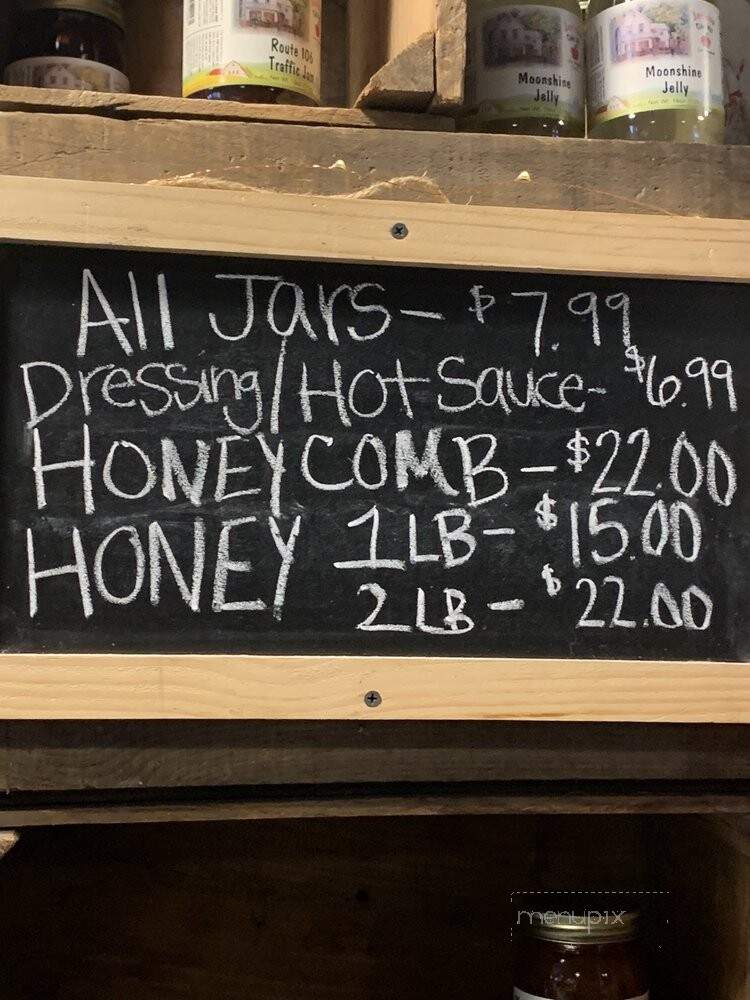 Route 106
Traffic Jam
Moonshine
Jelly
Moonshine
Jelly
All Jars - $7.99
Dressing/Hot Sauce- $6.99
HONEYCOMB - $22.00
HONEY 1LB - $15.00
2LB - $22.00
menupix